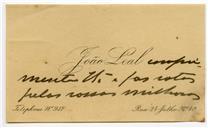 João Leal cumpri-
menta V. E. e faz votos
pelas vossas melhoras
Telephone Nº 947
Rua 24 Julho Nº 40